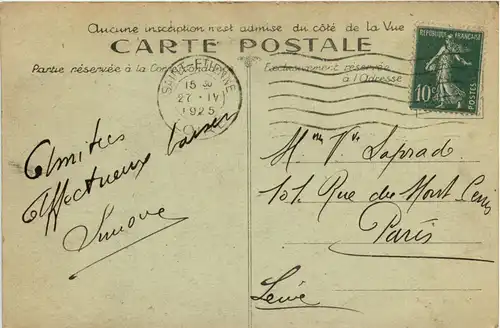 Aucune inscription n'est admise du côté de la Vue
CARTE POSTALE
Partie réservée à la
Exclusivement réservée
à l'Adresse
SAINT-ETIENNE
15 30
27 - IV
1925
REPUBLIQUE FRANÇAISE
10c
POSTES
Amitiés
Affectueux baisers
Simone
Mme Vve Laprade
101 Rue du Mont Cenis
Paris
Seine